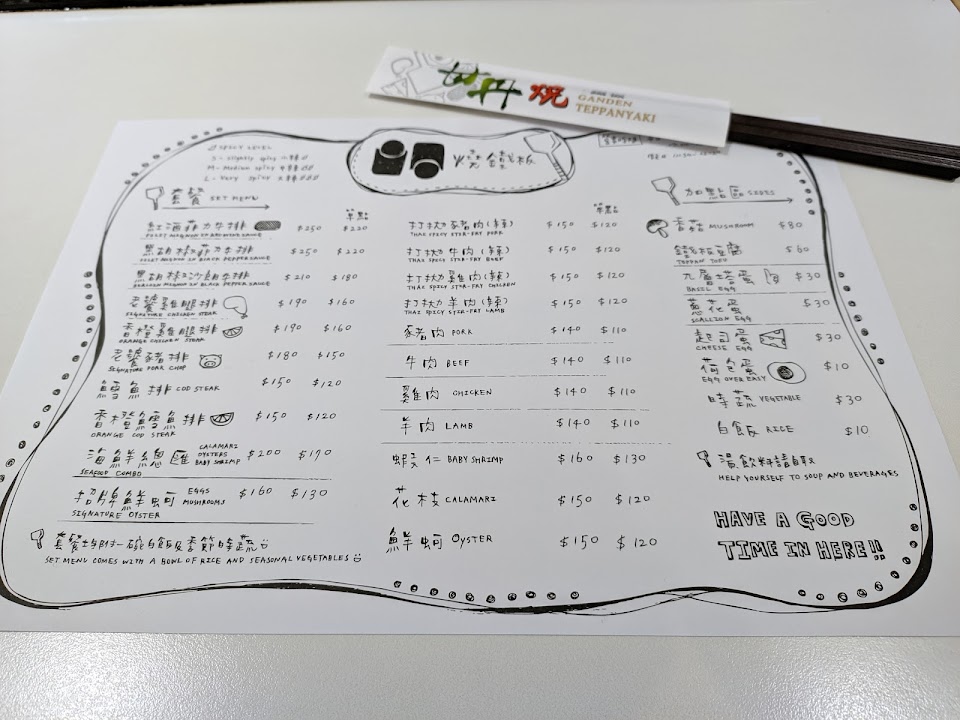 甘丹 燒 GANDEN
TEPPANYAKI
SPICY LEVEL
S - Slightly spicy 小辣
M - Medium spicy 中辣
L - Very spicy 大辣
燒鐵板
套餐 SET MENU
單點
紅酒菲力牛排 $250 $220
FILLET MIGNON IN RED WINE SAUCE
黑胡椒菲力牛排 $250 $220
FILLET MIGNON IN BLACK PEPPER SAUCE
黑胡椒沙朗牛排 $210 $180
SIRLOIN MIGNON IN BLACK PEPPER SAUCE
老饕雞腿排 $190 $160
SIGNATURE CHICKEN STEAK
香橙雞腿排 $190 $160
ORANGE CHICKEN STEAK
老饕豬排 $180 $150
SIGNATURE PORK CHOP
鱈魚排 COD STEAK $150 $120
香橙鱈魚排 $150 $120
ORANGE COD STEAK
海鮮總匯 CALAMARI OYSTERS BABY SHRIMP $200 $170
SEAFOOD COMBO
招牌鮮蚵 EGGS MUSHROOMS $160 $130
SIGNATURE OYSTER
套餐均附一碗白飯及季節時蔬
SET MENU COMES WITH A BOWL OF RICE AND SEASONAL VEGETABLES
單點
打拋豬肉(辣) $150 $120
THAI SPICY STIR-FRY PORK
打拋牛肉(辣) $150 $120
THAI SPICY STIR-FRY BEEF
打拋雞肉(辣) $150 $120
THAI SPICY STIR-FRY CHICKEN
打拋羊肉(辣) $150 $120
THAI SPICY STIR-FRY LAMB
豬肉 PORK $140 $110
牛肉 BEEF $140 $110
雞肉 CHICKEN $140 $110
羊肉 LAMB $140 $110
蝦仁 BABY SHRIMP $160 $130
花枝 CALAMARI $150 $120
鮮蚵 OYSTER $150 $120
加點區 SIDES
香菇 MUSHROOM $80
鐵板豆腐 $60
TEPPAN TOFU
九層塔蛋 $30
BASIL EGG
蔥花蛋 $30
SCALLION EGG
起司蛋 $30
CHEESE EGG
荷包蛋 $10
EGG OVER EASY
時蔬 VEGETABLE $30
白飯 RICE $10
湯飲料請自取
HELP YOURSELF TO SOUP AND BEVERAGES
HAVE A GOOD
TIME IN HERE!!